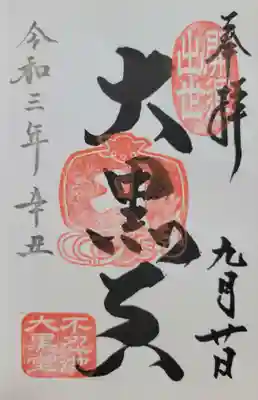 奉拝
九月廿日
開運
出世
大黒天
令和三年辛丑
不忍池
大黒堂